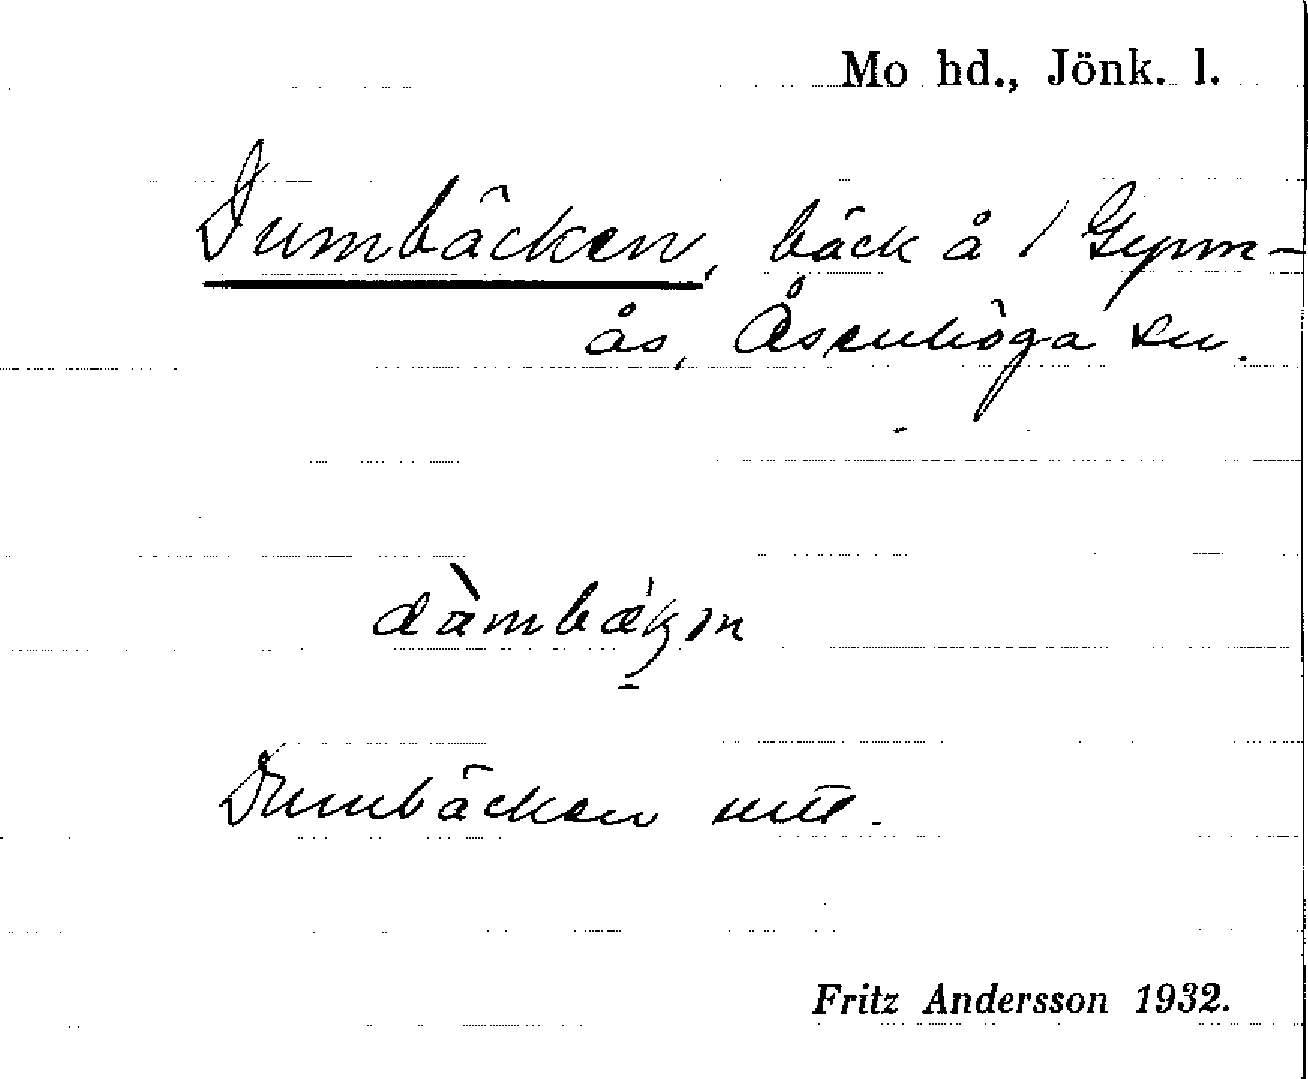 Mo hd., Jönk. l.
Dumbäcken, bäck å 1 Gynn-
ås, Åsenhöga sn.
dàmbák
Dumbäcken mtl.
Fritz Andersson 1932.